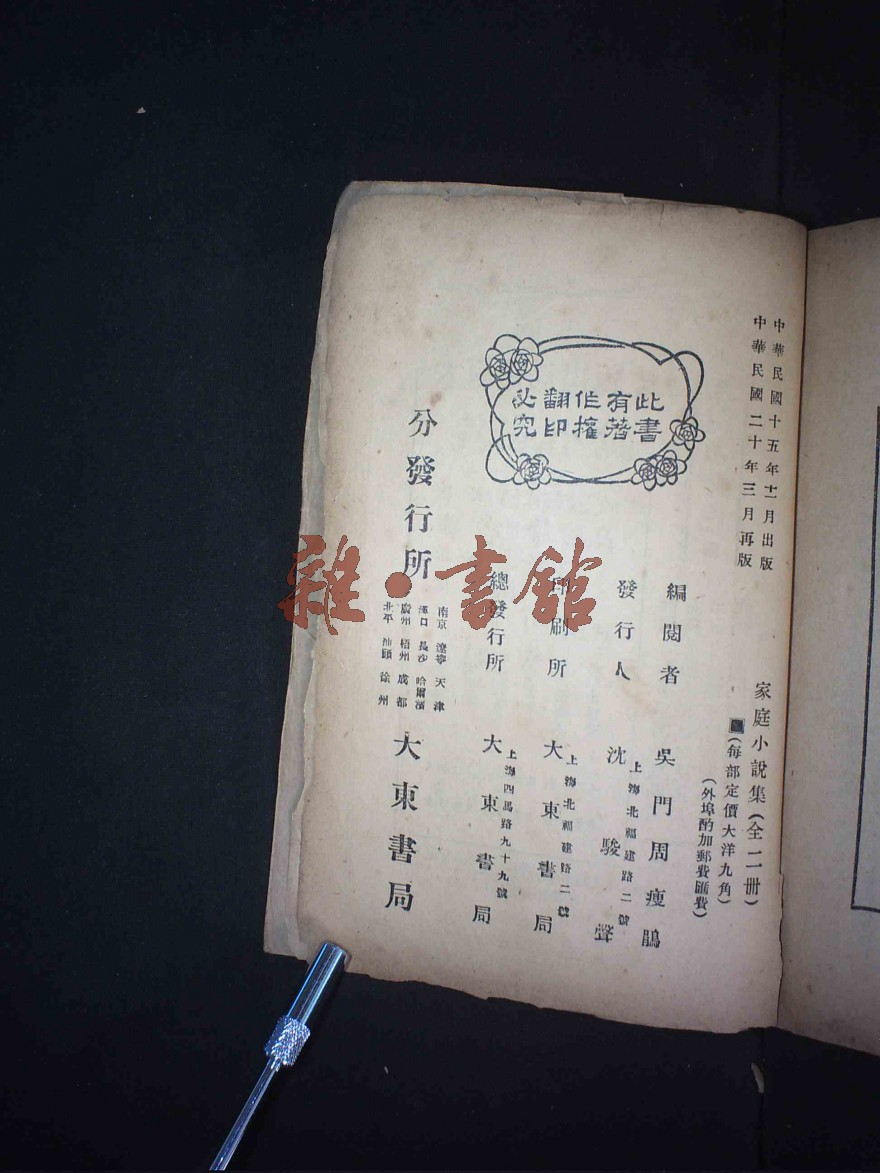 中華民國十五年十一月出版
中華民國二十年三月再版
家庭小說集（全二冊）
（每部定價大洋九角）
（外埠酌加郵費匯費）
編閱者 吳門周瘦鵑
發行人 沈駿聲
上海北福建路二號
印刷所 大東書局
上海北福建路二號
總發行所 大東書局
上海四馬路九十九號
分發行所 大東書局
南京 遼寧 天津
漢口 長沙 哈爾濱
廣州 梧州 成都
北平 汕頭 徐州
此書
有著
作權
翻印
必究
雜·書館